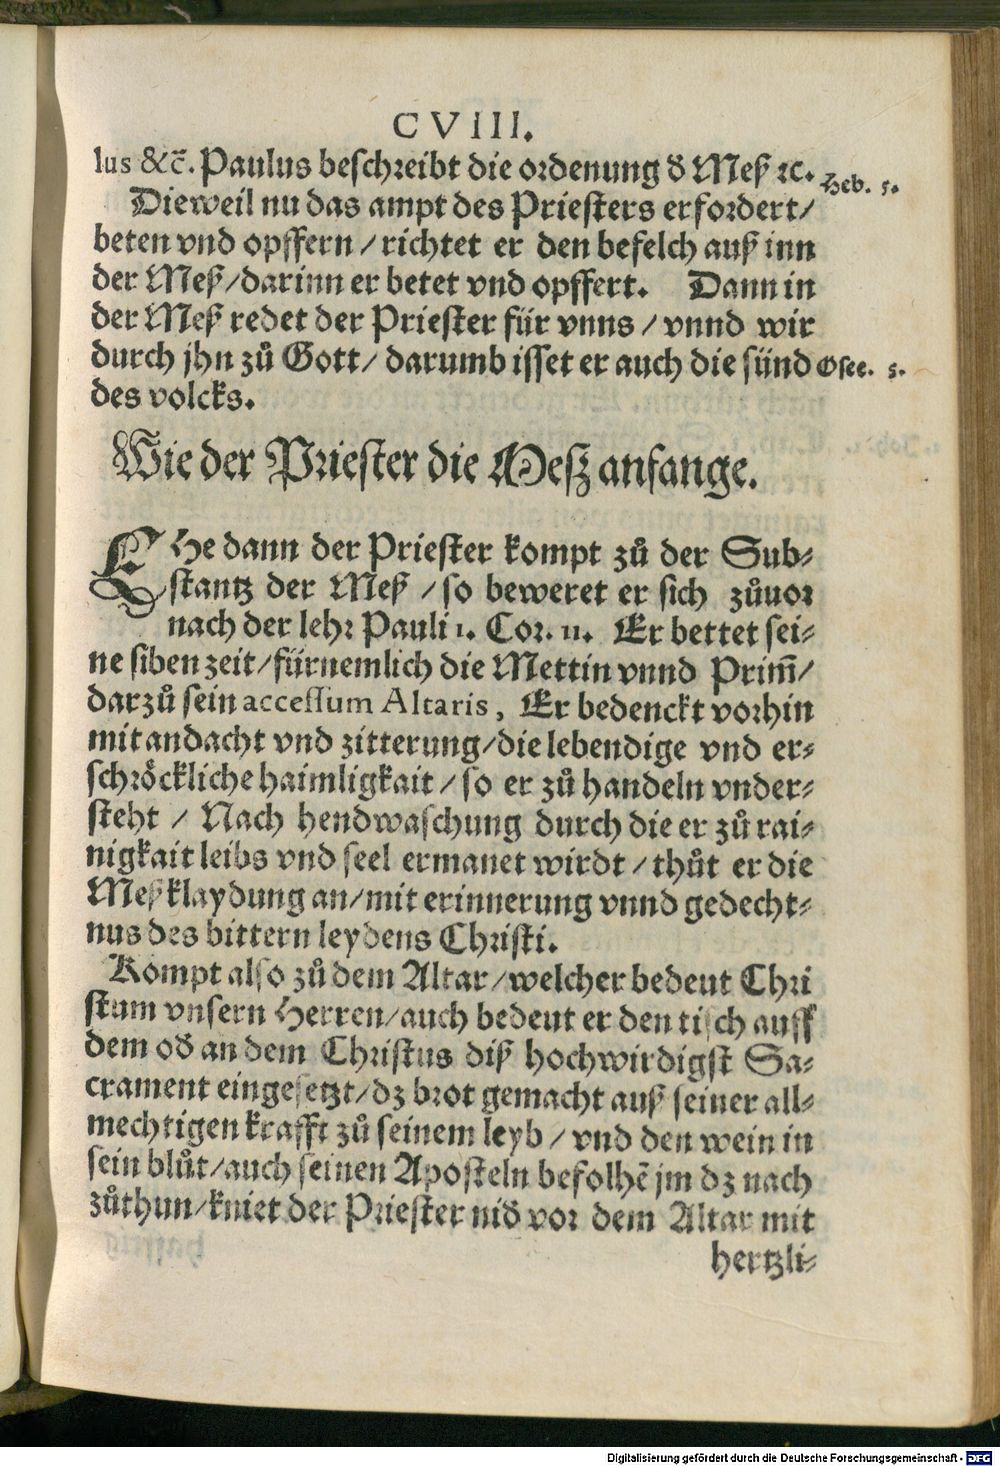 CVIII.
lus &c̄. Paulus beschreibt die ordenung d̕ Meß ꝛc. Heb. 5.
Dieweil nu das ampt des Priesters erfordert/
beten vnd opffern/richtet er den befelch auß inn
der Meß/darinn er betet vnd opffert. Dann in
der Meß redet der Priester für vnns/vnnd wir
durch jhn zů Gott/darumb isset er auch die sünd Osee. 5.
des volcks.
Wie der Priester die Mesz anfange.
EHe dann der Priester kompt zů der Sub-
stantz der Meß/so beweret er sich zůuor
nach der lehr Pauli 1. Cor. 11. Er bettet sei-
ne siben zeit/fürnemlich die Mettin vnnd Prim̄/
darzů sein accessum Altaris, Er bedenckt vorhin
mit andacht vnd zitterung/die lebendige vnd er-
schröckliche haimligkait/so er zů handeln vnder-
steht/Nach hendwaschung durch die er zů rai-
nigkait leibs vnd seel ermanet wirdt/thůt er die
Meßklaydung an/mit erinnerung vnnd gedecht-
nus des bittern leydens Christi.
Kompt also zů dem Altar/welcher bedeut Chri
stum vnsern Herren/auch bedeut er den tisch auff
dem od̕ an dem Christus diß hochwirdigst Sa-
crament eingesetzt/dz brot gemacht auß seiner all-
mechtigen krafft zů seinem leyb/vnd den wein in
sein blůt/auch seinen Aposteln befolhē jm dz nach
zůthun/kniet der Priester nid̕ vor dem Altar mit
hertzli-
Digitalisierung gefördert durch die Deutsche Forschungsgemeinschaft - DFG